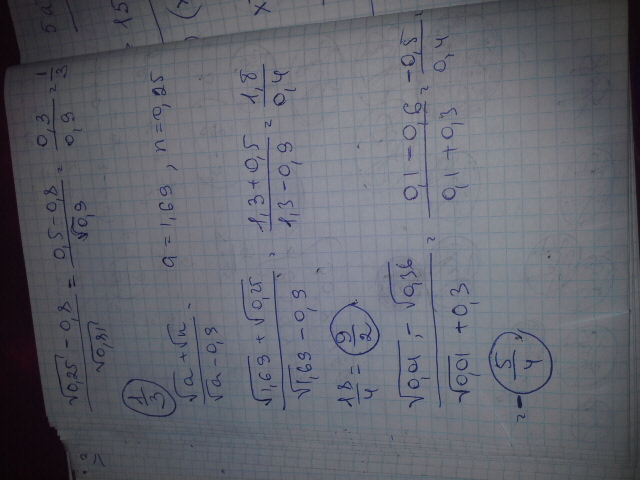 (√0,25 − 0,8)/√0,81 = (0,5−0,8)/√0,9 = 0,3/0,9 = 1/3
1/3
(√a + √n)/(√a − 0,9), a = 1,69, n = 0,25
(√1,69 + √0,25)/(√1,69 − 0,9) = (1,3+0,5)/(1,3−0,9) = 1,8/0,4
18/4 = 9/2
(√0,01 − √0,36)/(√0,01 + 0,3) = (0,1−0,6)/(0,1+0,3) = −0,5/0,4 =
= −5/4